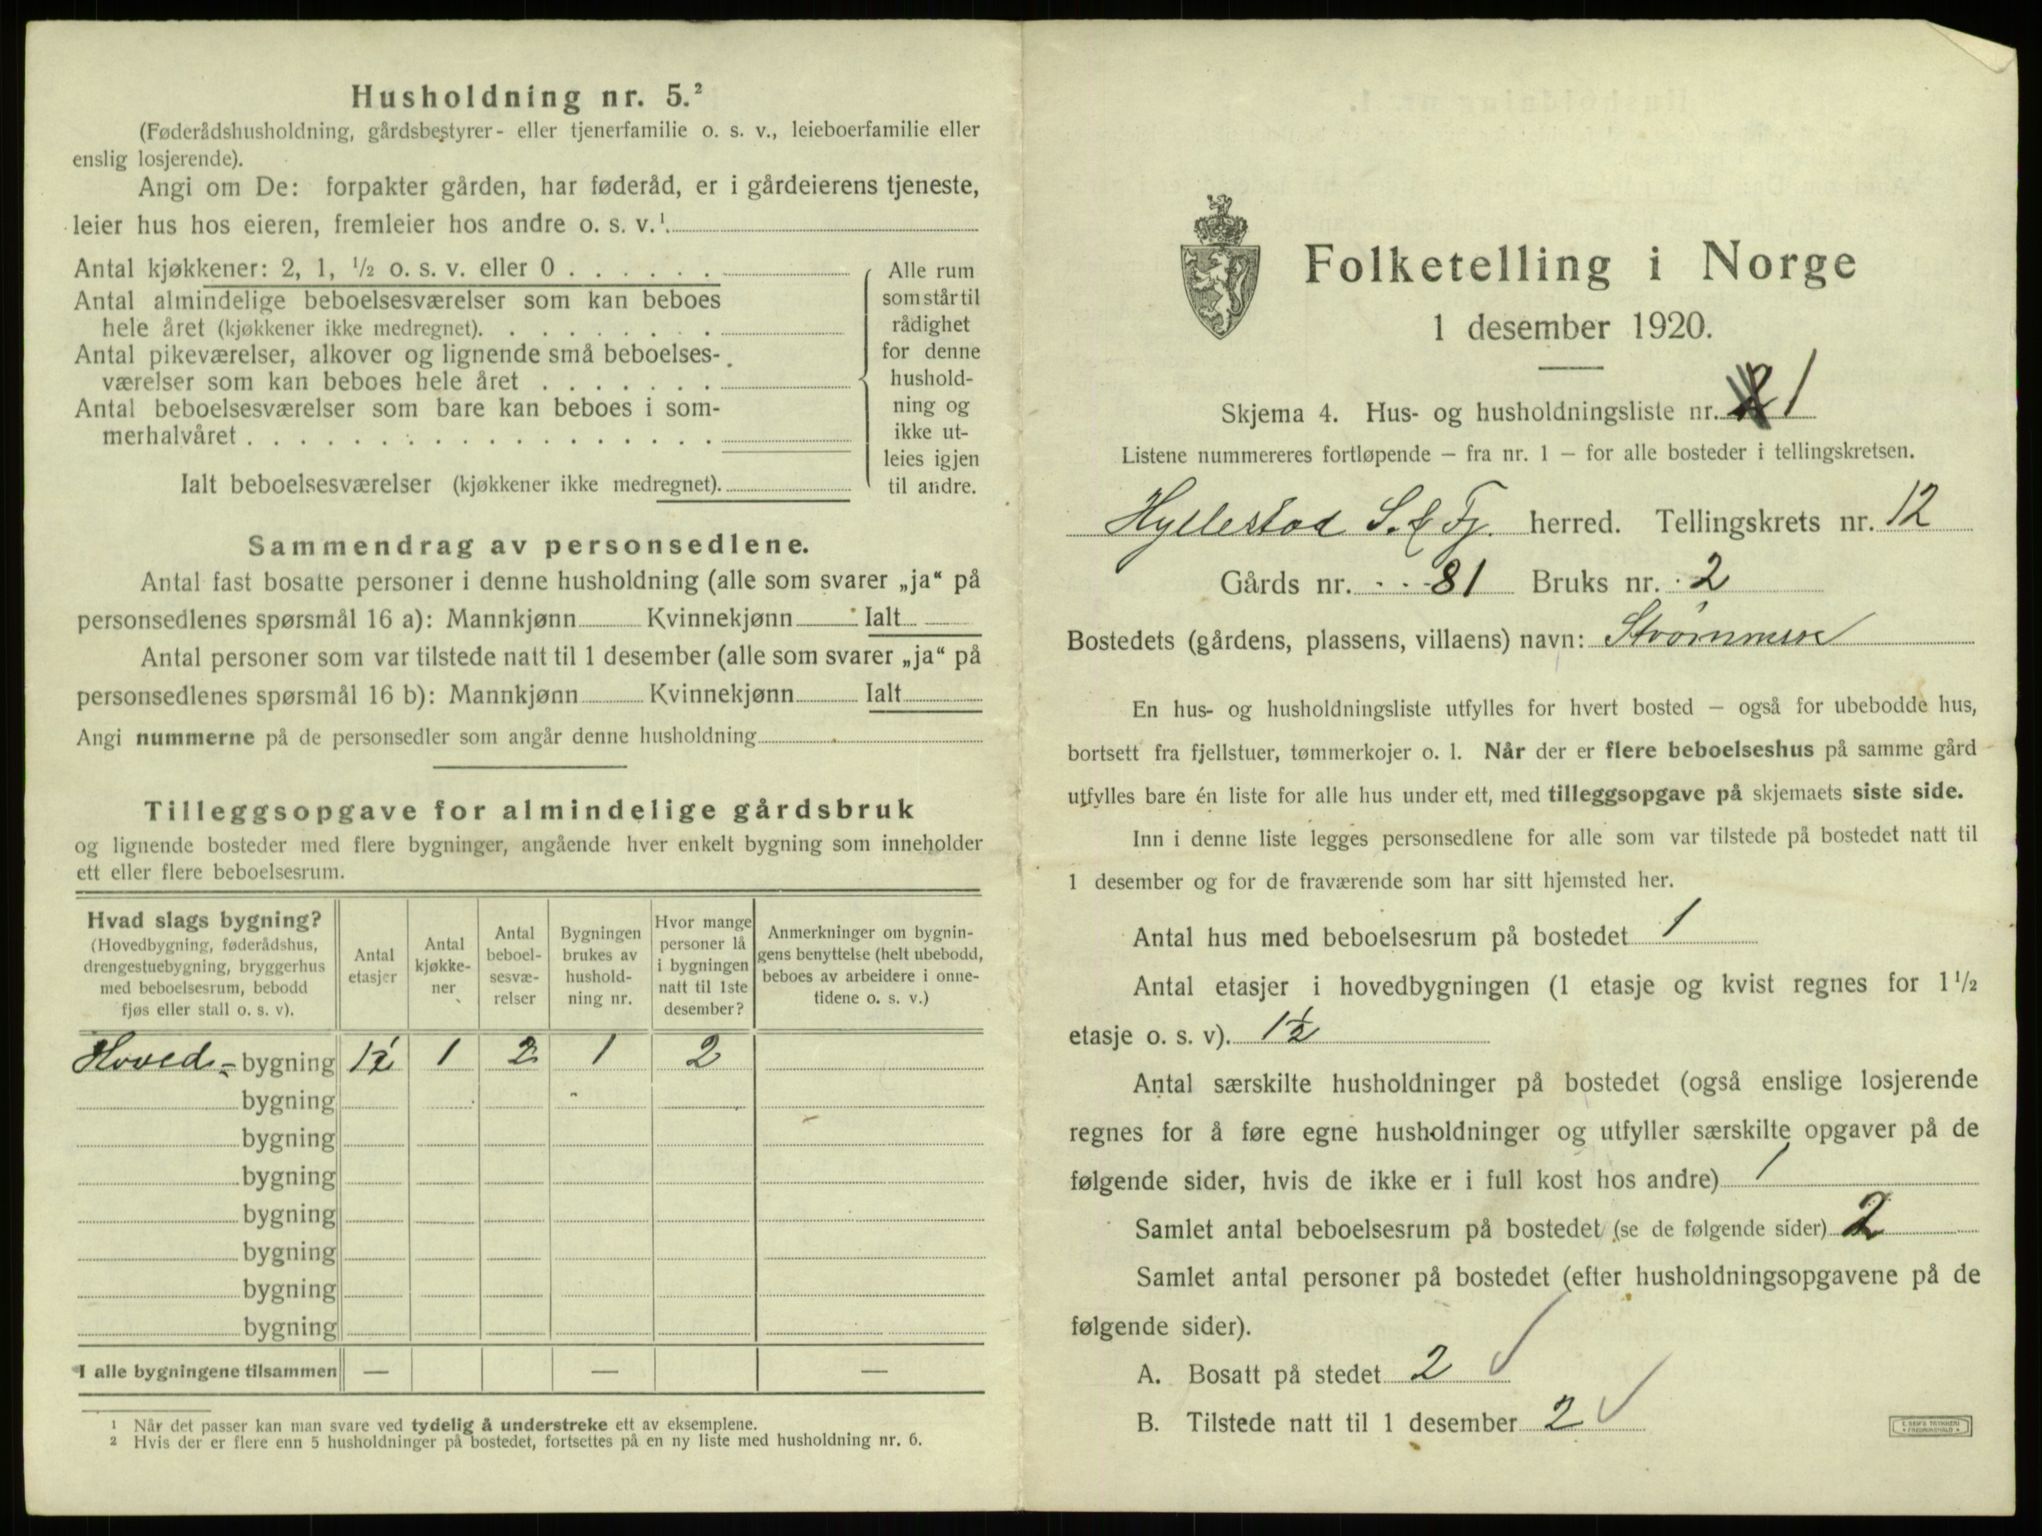 Husholdning nr. 5.²
(Føderådshusholdning, gårdsbestyrer- eller tjenerfamilie o. s. v., leieboerfamilie eller
enslig losjerende).
Angi om De: forpakter gården, har føderåd, er i gårdeierens tjeneste,
leier hus hos eieren, fremleier hos andre o. s. v.¹
Antal kjøkkener: 2, 1, ½ o. s. v. eller 0 . . . . . .
Antal almindelige beboelsesværelser som kan beboes
hele året (kjøkkener ikke medregnet). . . . . . . . .
Antal pikeværelser, alkover og lignende små beboelses-
værelser som kan beboes hele året . . . . . . .
Antal beboelsesværelser som bare kan beboes i som-
merhalvåret . . . . . . . . . . . . . . . . . .
Ialt beboelsesværelser (kjøkkener ikke medregnet).
Alle rum
som står til
rådighet
for denne
hushold-
ning og
ikke ut-
leies igjen
til andre.
Sammendrag av personsedlene.
Antal fast bosatte personer i denne husholdning (alle som svarer „ja“ på
personsedlenes spørsmål 16 a): Mannkjønn Kvinnekjønn Ialt
Antal personer som var tilstede natt til 1 desember (alle som svarer „ja“ på
personsedlenes spørsmål 16 b): Mannkjønn Kvinnekjønn Ialt
Angi nummerne på de personsedler som angår denne husholdning
Tilleggsopgave for almindelige gårdsbruk
og lignende bosteder med flere bygninger, angående hver enkelt bygning som inneholder
ett eller flere beboelsesrum.
Hvad slags bygning?
(Hovedbygning, føderådshus,
drengestuebygning, bryggerhus
med beboelsesrum, bebodd
fjøs eller stall o. s. v).
Antal
etasjer
Antal
kjøkke-
ner
Antal
beboel-
sesvæ-
relser
Bygningen
brukes av
hushold-
ning nr.
Hvor mange
personer lå
i bygningen
natt til 1ste
desember?
Anmerkninger om bygnin-
gens benyttelse (helt ubebodd,
beboes av arbeidere i onne-
tidene o. s. v.)
Hoved- bygning 1½ 1 2 1 2
bygning
bygning
bygning
bygning
bygning
bygning
bygning
I alle bygningene tilsammen — — —
¹ Når det passer kan man svare ved tydelig å understreke ett av eksemplene.
² Hvis der er flere enn 5 husholdninger på bostedet, fortsettes på en ny liste med husholdning nr. 6.
Folketelling i Norge
1 desember 1920.
Skjema 4. Hus- og husholdningsliste nr. 1
Listene nummereres fortløpende — fra nr. 1 — for alle bosteder i tellingskretsen.
Hyllestad S. & Fj. herred. Tellingskrets nr. 12
Gårds nr. 81 Bruks nr. 2
Bostedets (gårdens, plassens, villaens) navn: Strømmen
En hus- og husholdningsliste utfylles for hvert bosted — også for ubebodde hus,
bortsett fra fjellstuer, tømmerkojer o. l. Når der er flere beboelseshus på samme gård
utfylles bare én liste for alle hus under ett, med tilleggsopgave på skjemaets siste side.
Inn i denne liste legges personsedlene for alle som var tilstede på bostedet natt til
1 desember og for de fraværende som har sitt hjemsted her.
Antal hus med beboelsesrum på bostedet 1
Antal etasjer i hovedbygningen (1 etasje og kvist regnes for 1½
etasje o. s. v). 1½
Antal særskilte husholdninger på bostedet (også enslige losjerende
regnes for å føre egne husholdninger og utfyller særskilte opgaver på de
følgende sider, hvis de ikke er i full kost hos andre) 1
Samlet antal beboelsesrum på bostedet (se de følgende sider) 2
Samlet antal personer på bostedet (efter husholdningsopgavene på de
følgende sider).
A. Bosatt på stedet 2
B. Tilstede natt til 1 desember 2